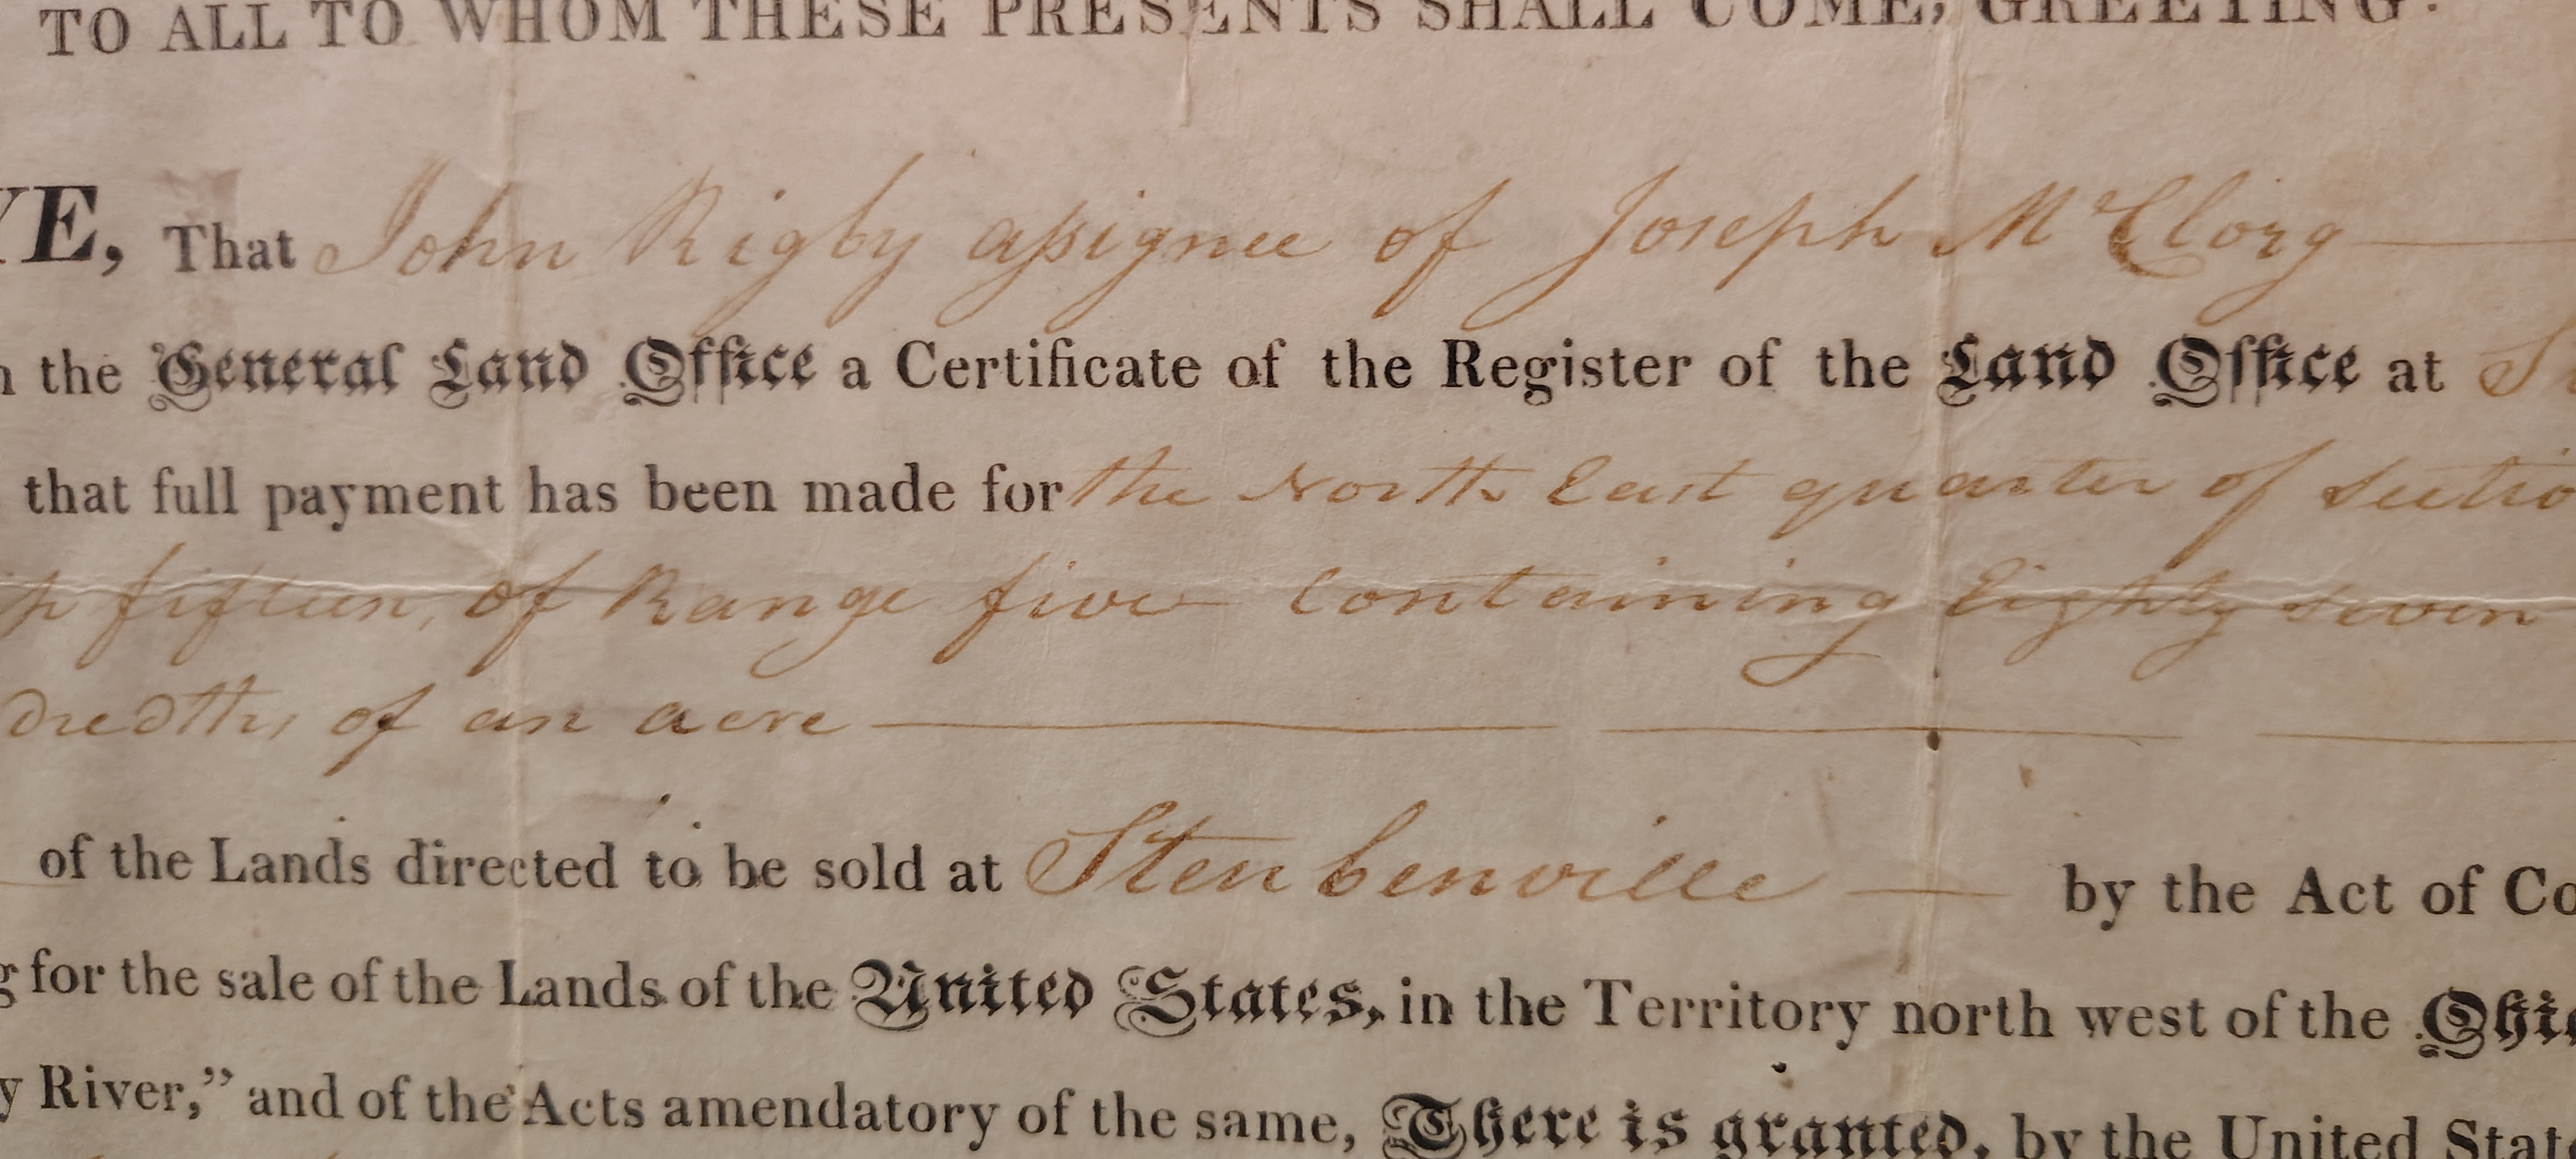 TO ALL TO WHOM THESE PRESENTS SHALL COME, GREETING:
YE, That John Rigby assignee of Joseph McClorg
n the General Land Office a Certificate of the Register of the Land Office at St
that full payment has been made for the North East quarter of sectio
ip fifteen, of Range five containing Eighty seven
dredths of an acre
of the Lands directed to be sold at Steubenville by the Act of Co
g for the sale of the Lands of the United States, in the Territory north west of the Ohio
y River,” and of the Acts amendatory of the same, There is granted, by the United Stat